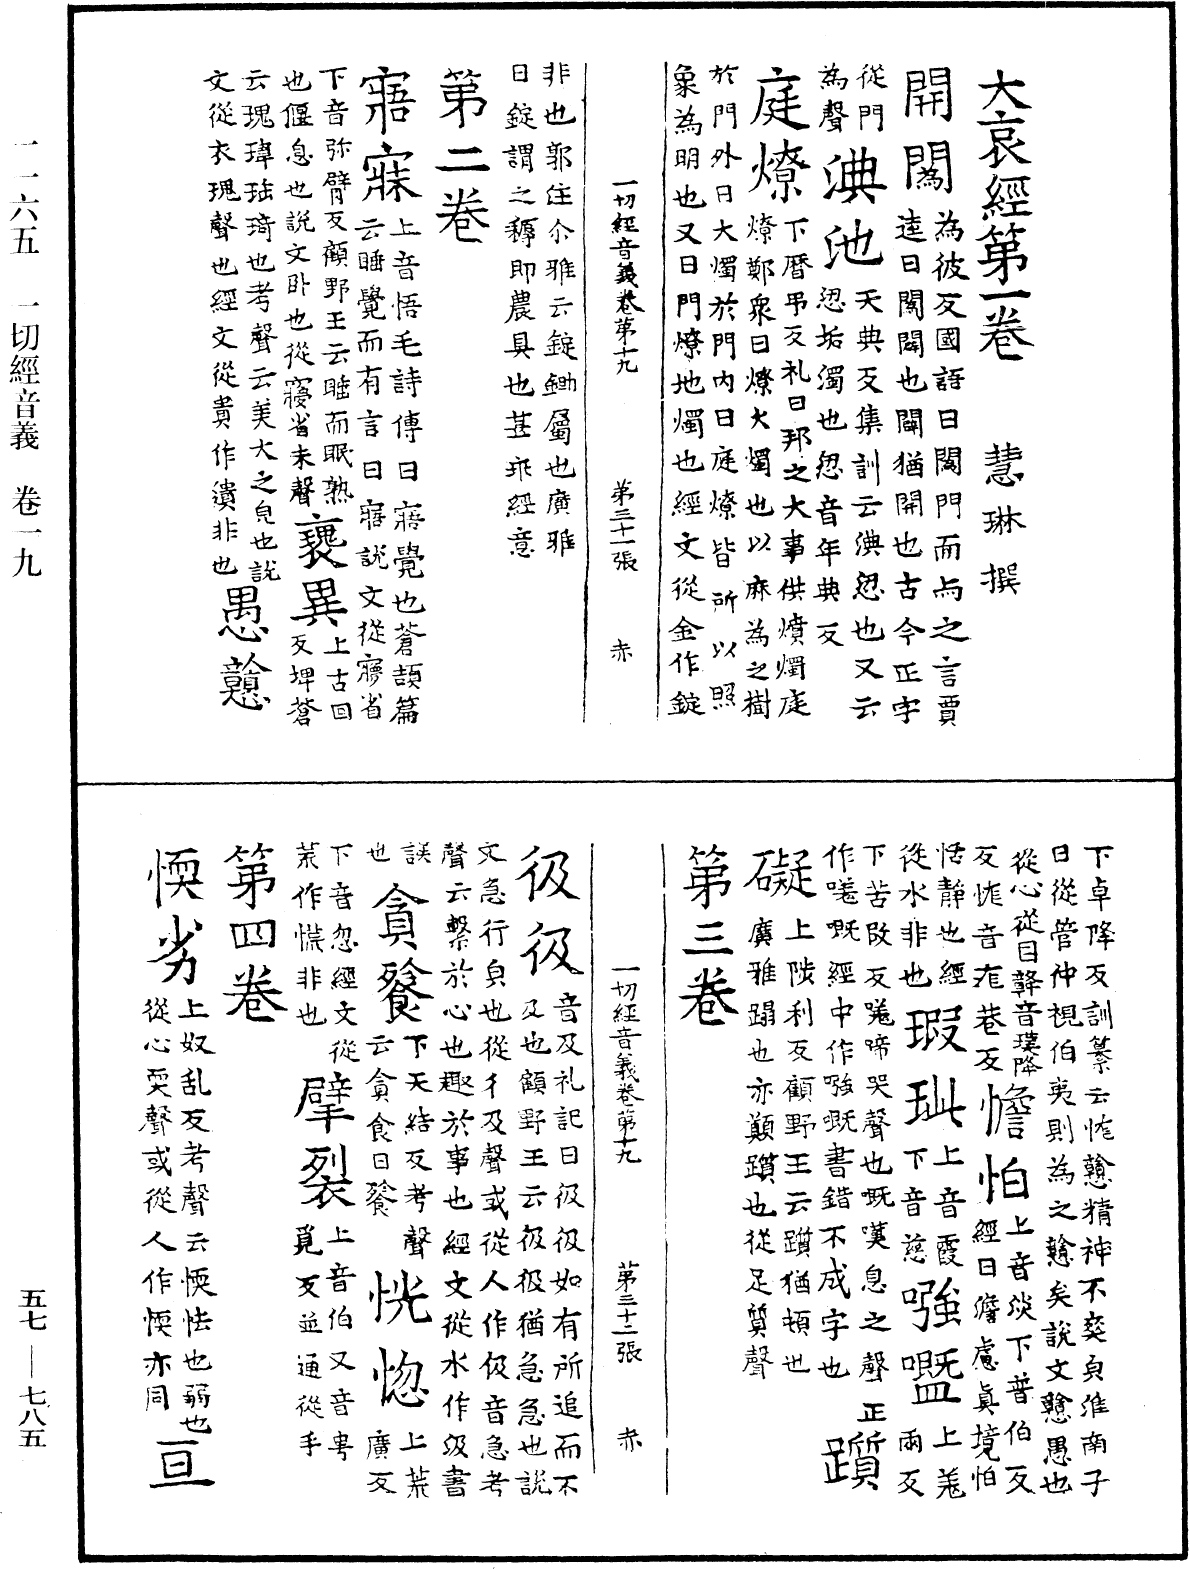 一一六五　一切經音義　卷一九
五七—七八五
大哀經第一卷　慧琳撰
開闢為彼反國語曰闢門而与之言賈
逵曰闢闢也闢猶開也古今正字
從門
為聲淟池天典反集訓云淟涊也又云
涊垢濁也涊音年典反
庭燎下曆弔反礼曰邦之大事供燌燭庭
燎鄭衆曰燎大燭也以麻為之樹
於門外曰大燭於門內曰庭燎皆所以照
衆為明也又曰門燎地燭也經文從金作錠
一切經音義卷第十九　第三十一張　赤
非也郭住尒雅云錠鋤屬也廣雅
曰錠謂之耨即農具也甚乖經意
第二卷
寤寐上音悟毛詩傳曰寤覺也蒼頡篇
云睡覺而有言曰寤說文從㝱省
下音弥臂反顧野王云睡而眠熟
也偃息也說文卧也從㝱省未聲
褢異上古回
反埤蒼
云瑰瑋珤琦也考聲云美大之皃也說
文從衣瑰聲也經文從貴作潰非也
愚戇
下卓降反訓纂云怐戇精神不爽皃淮南子
曰從管仲視伯夷則為之戇矣說文戇愚也
從心從目贛音瓂降
反怐音尨巷反
憺怕上音淡下普伯反
經曰澹慮真境怕
恬靜也經
從水非也
瑕玼上音霞
下音慈
㗥嘅上羗
兩反
下苦改反㗥啼哭聲也嘅嘆息之聲正
作嗟嘅經中作㗥嘅書錯不成字也
躓
礙上陟利反顧野王云躓猶頓也
廣雅蹋也亦顛躓也從足質聲
第三卷
一切經音義卷第十九　第三十二張　赤
伋伋音及礼記曰伋伋如有所追而不
及也顧野王云伋伋猶急急也說
文急行皃也從彳及聲或從人作伋音急考
聲云繫於心也趣於事也經文從水作汲書
誤
也
貪餮下天結反考聲
云貪食曰餮
恍惚上荒
廣反
下音忽經文從
荒作慌非也
擘裂上音伯又音㝵
覓反並通從手
第四卷
愞劣上奴乱反考聲云愞怯也弱也
從心耎聲或從人作㑌亦同
亘